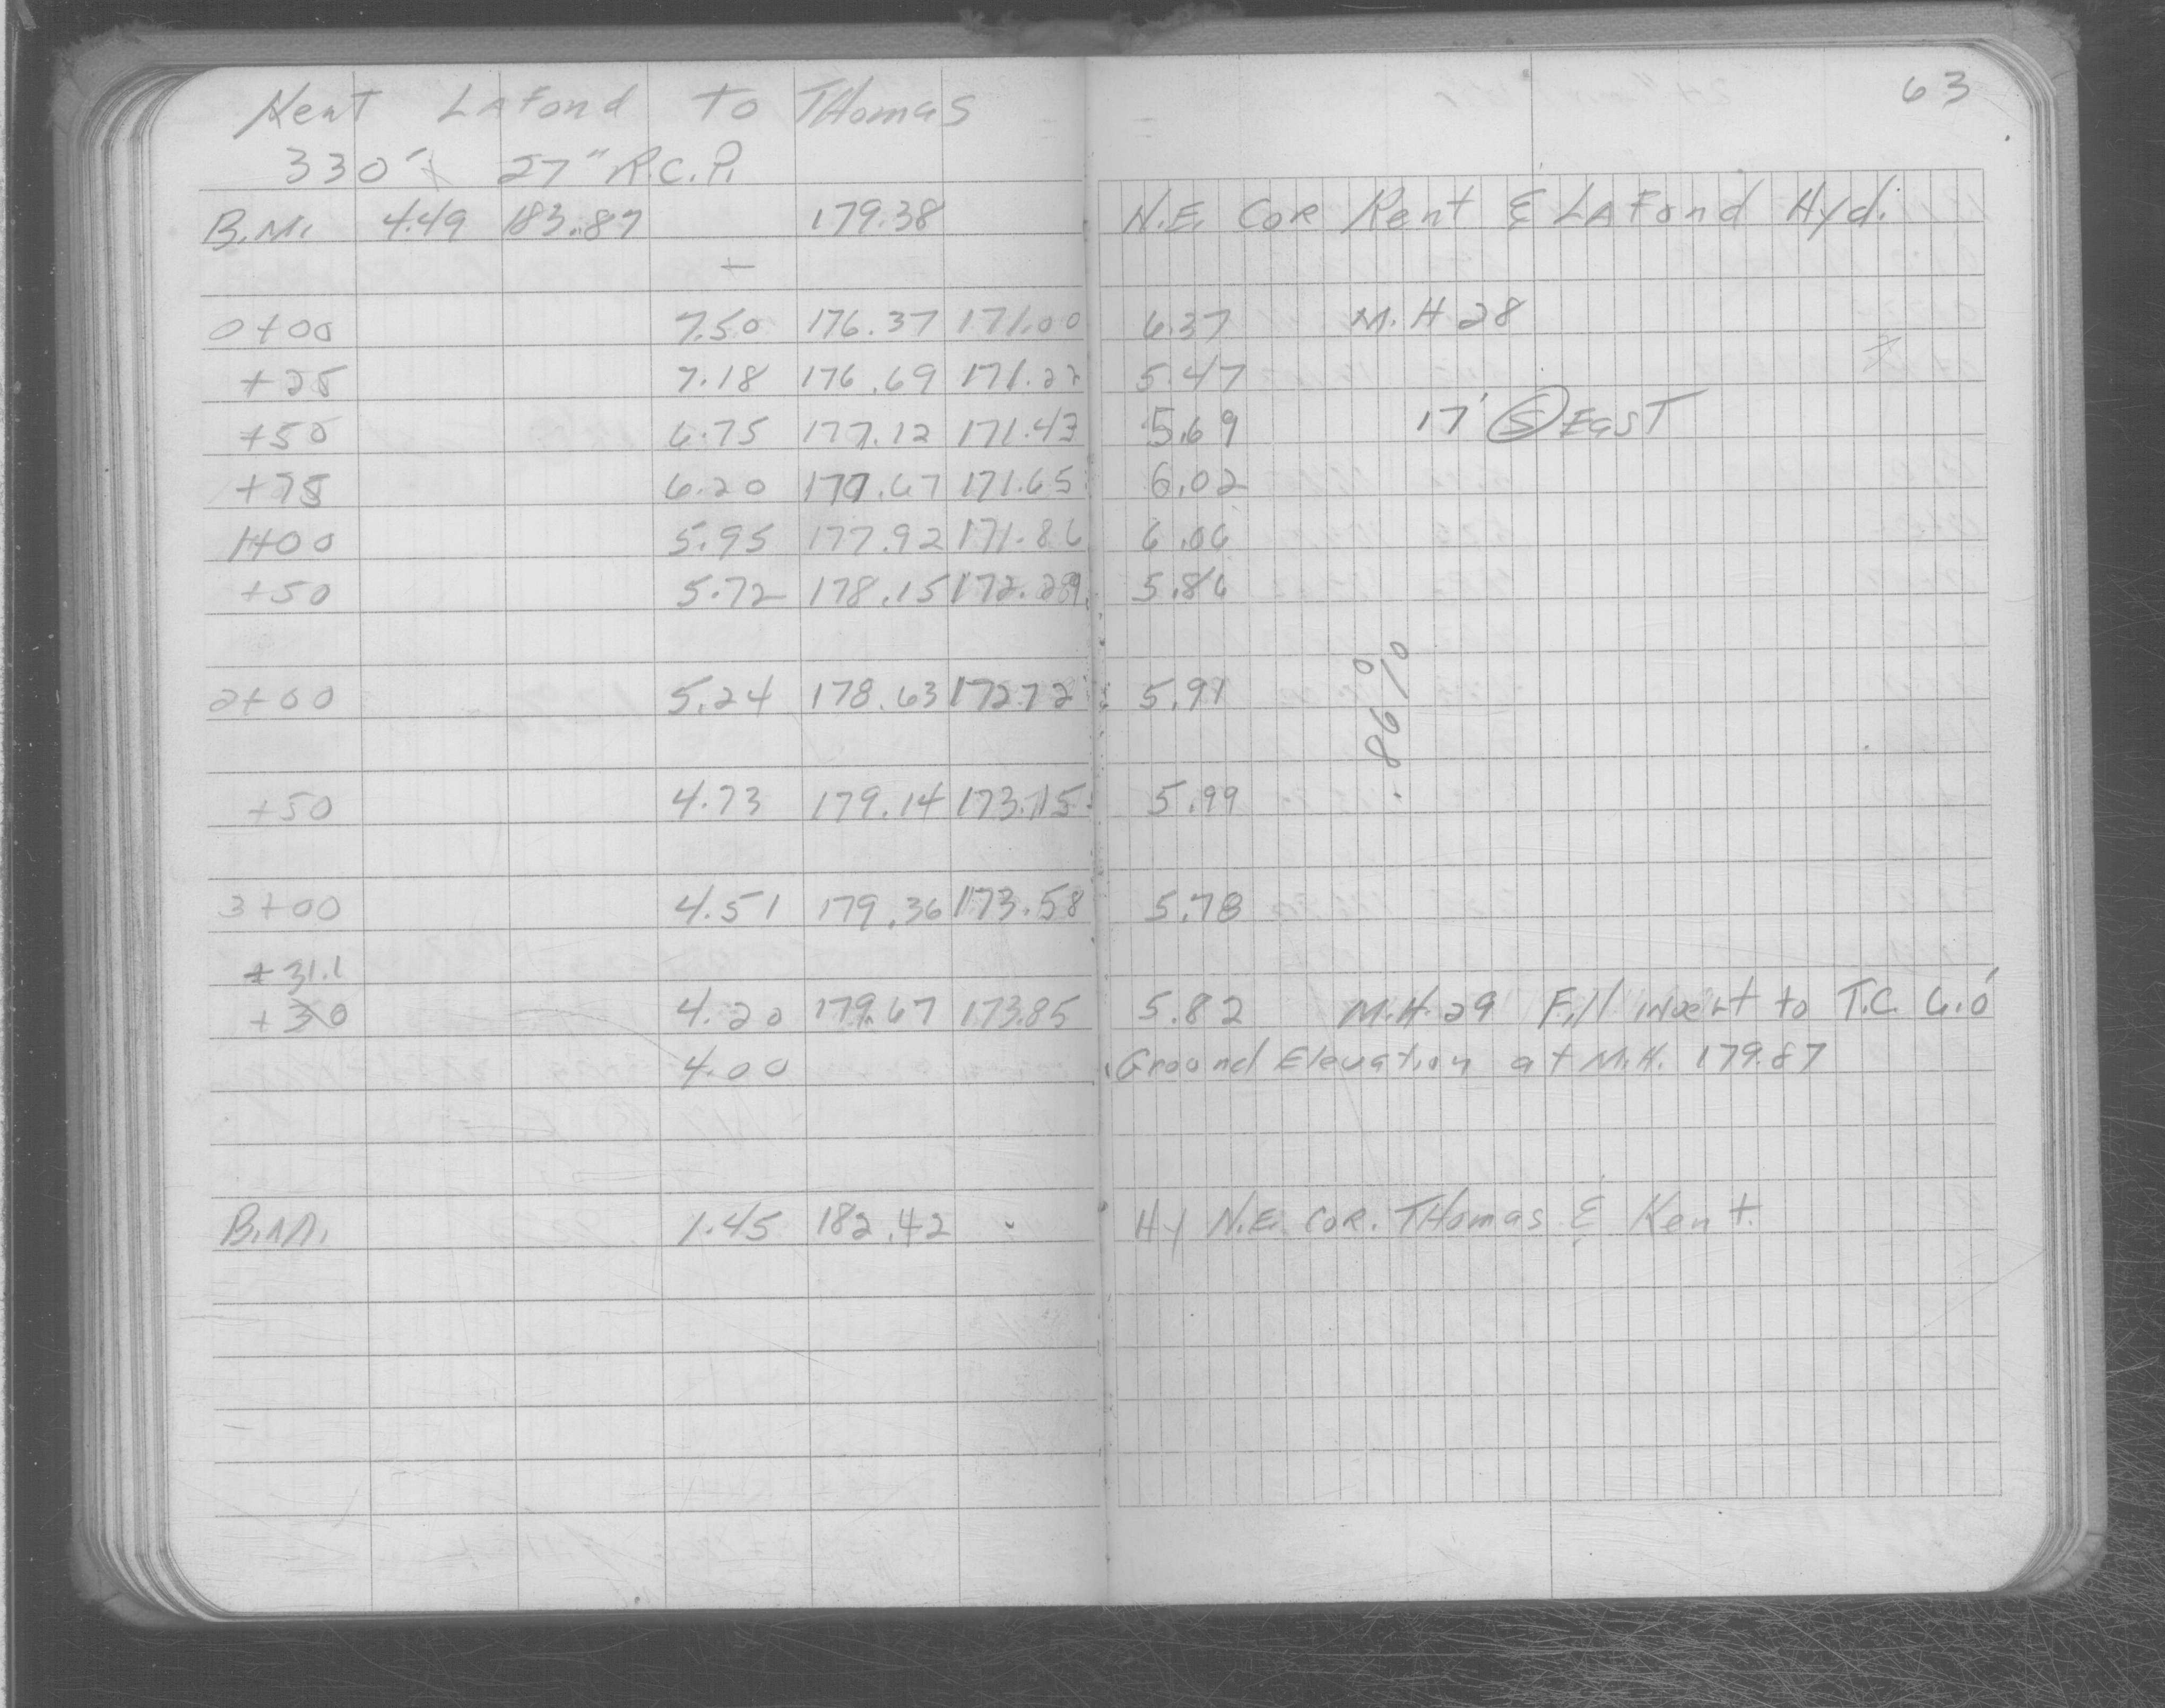 63
Kent Lafond to THomas
330' 27" R.C.P.
B.M. 4.49 183.87 179.38 N.E. COR Kent & LAFond Hyd.
-
0+00 7.50 176.37 171.00 6.37 M.H 28
+25 7.18 176.69 171.22 5.47
+50 6.75 177.12 171.43 5.69 17' S EAST
+75 6.20 177.67 171.65 6.02
1+00 5.95 177.92 171.86 6.06
+50 5.72 178.15 172.29 5.86
2+00 5.24 178.63 172.72 5.91
.86%
+50 4.73 179.14 173.15 5.99
3+00 4.51 179.36 173.58 5.78
+31.1
+30 4.20 179.67 173.85 5.82 M.H. 29 Fill invert to T.C. 6.0'
4.00 Ground Elevation at M.H. 179.87
B.M. 1.45 182.42 Hy N.E. COR. THomas & Kent.